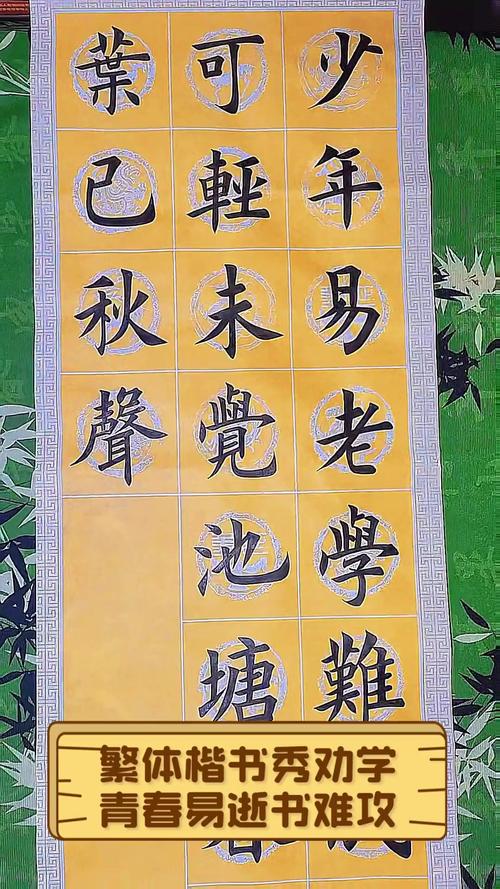 少年易老學難
可輕未覺池塘
葉已秋聲
繁体楷书秀劝学
青春易逝书难攻